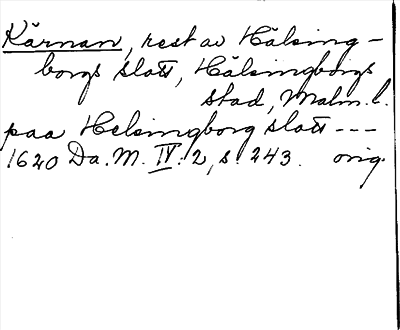 Kärnan, rest av Hälsing-
borgs slott, Hälsingborgs
stad, Malm. l.
paa Helsingborg slott ---
1620 Da. M. IV: 2, s. 243. orig.